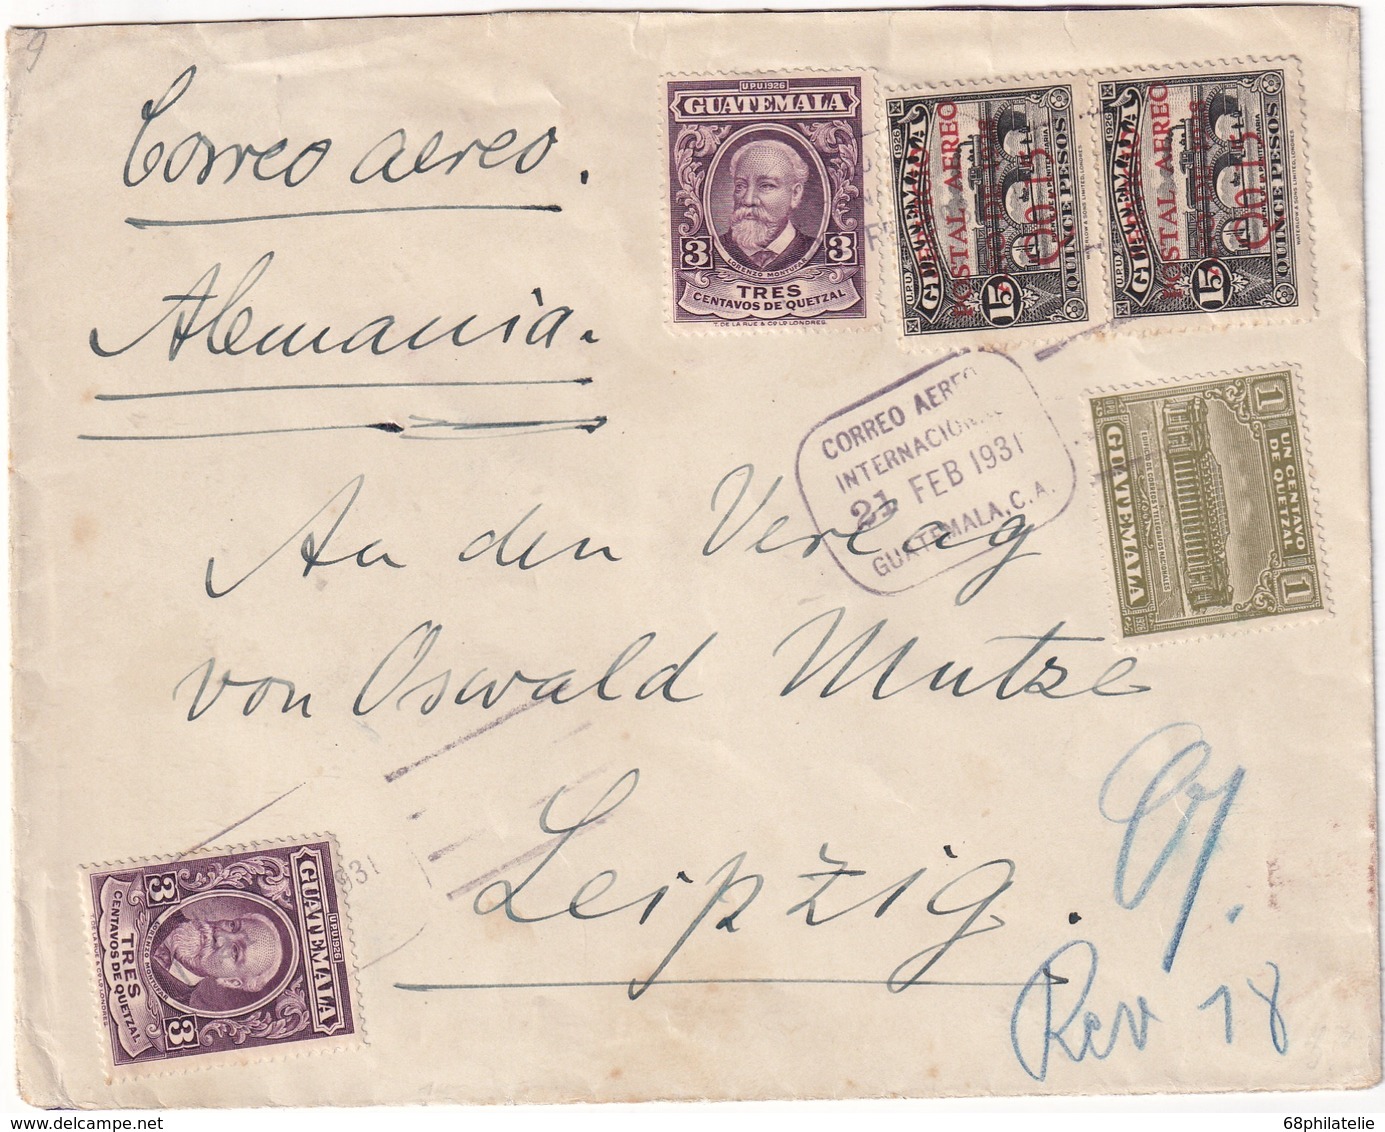 9
Correo aereo.
Alemania.
U.P.U. 1926
GUATEMALA
3 3
LORENZO MONTUFAR
TRES
CENTAVOS DE QUETZAL
T. DE LA RUE & CO LD LONDRES.
U.P.U. 1926
GUATEMALA
SERVICIO POSTAL AEREO
Q0.15
15
QUINCE PESOS
U.P.U. 1926
GUATEMALA
SERVICIO POSTAL AEREO
Q0.15
15
QUINCE PESOS
WATERLOW & SONS LIMITED, LONDRES
CORREO AEREO
INTERNACIONAL
21 FEB 1931
GUATEMALA, C. A.
1 UN CENTAVO DE QUETZAL 1
EDIFICIO DE CORREOS Y TELEGRAFOS NACIONALES
GUATEMALA
An den Verlag
von Oswald Mutze
Leipzig.
Rev 18
1931
U.P.U. 1926
GUATEMALA
3 3
LORENZO MONTUFAR
TRES
CENTAVOS DE QUETZAL
T. DE LA RUE & CO LD LONDRES.
www.delcampe.net
68philatelie